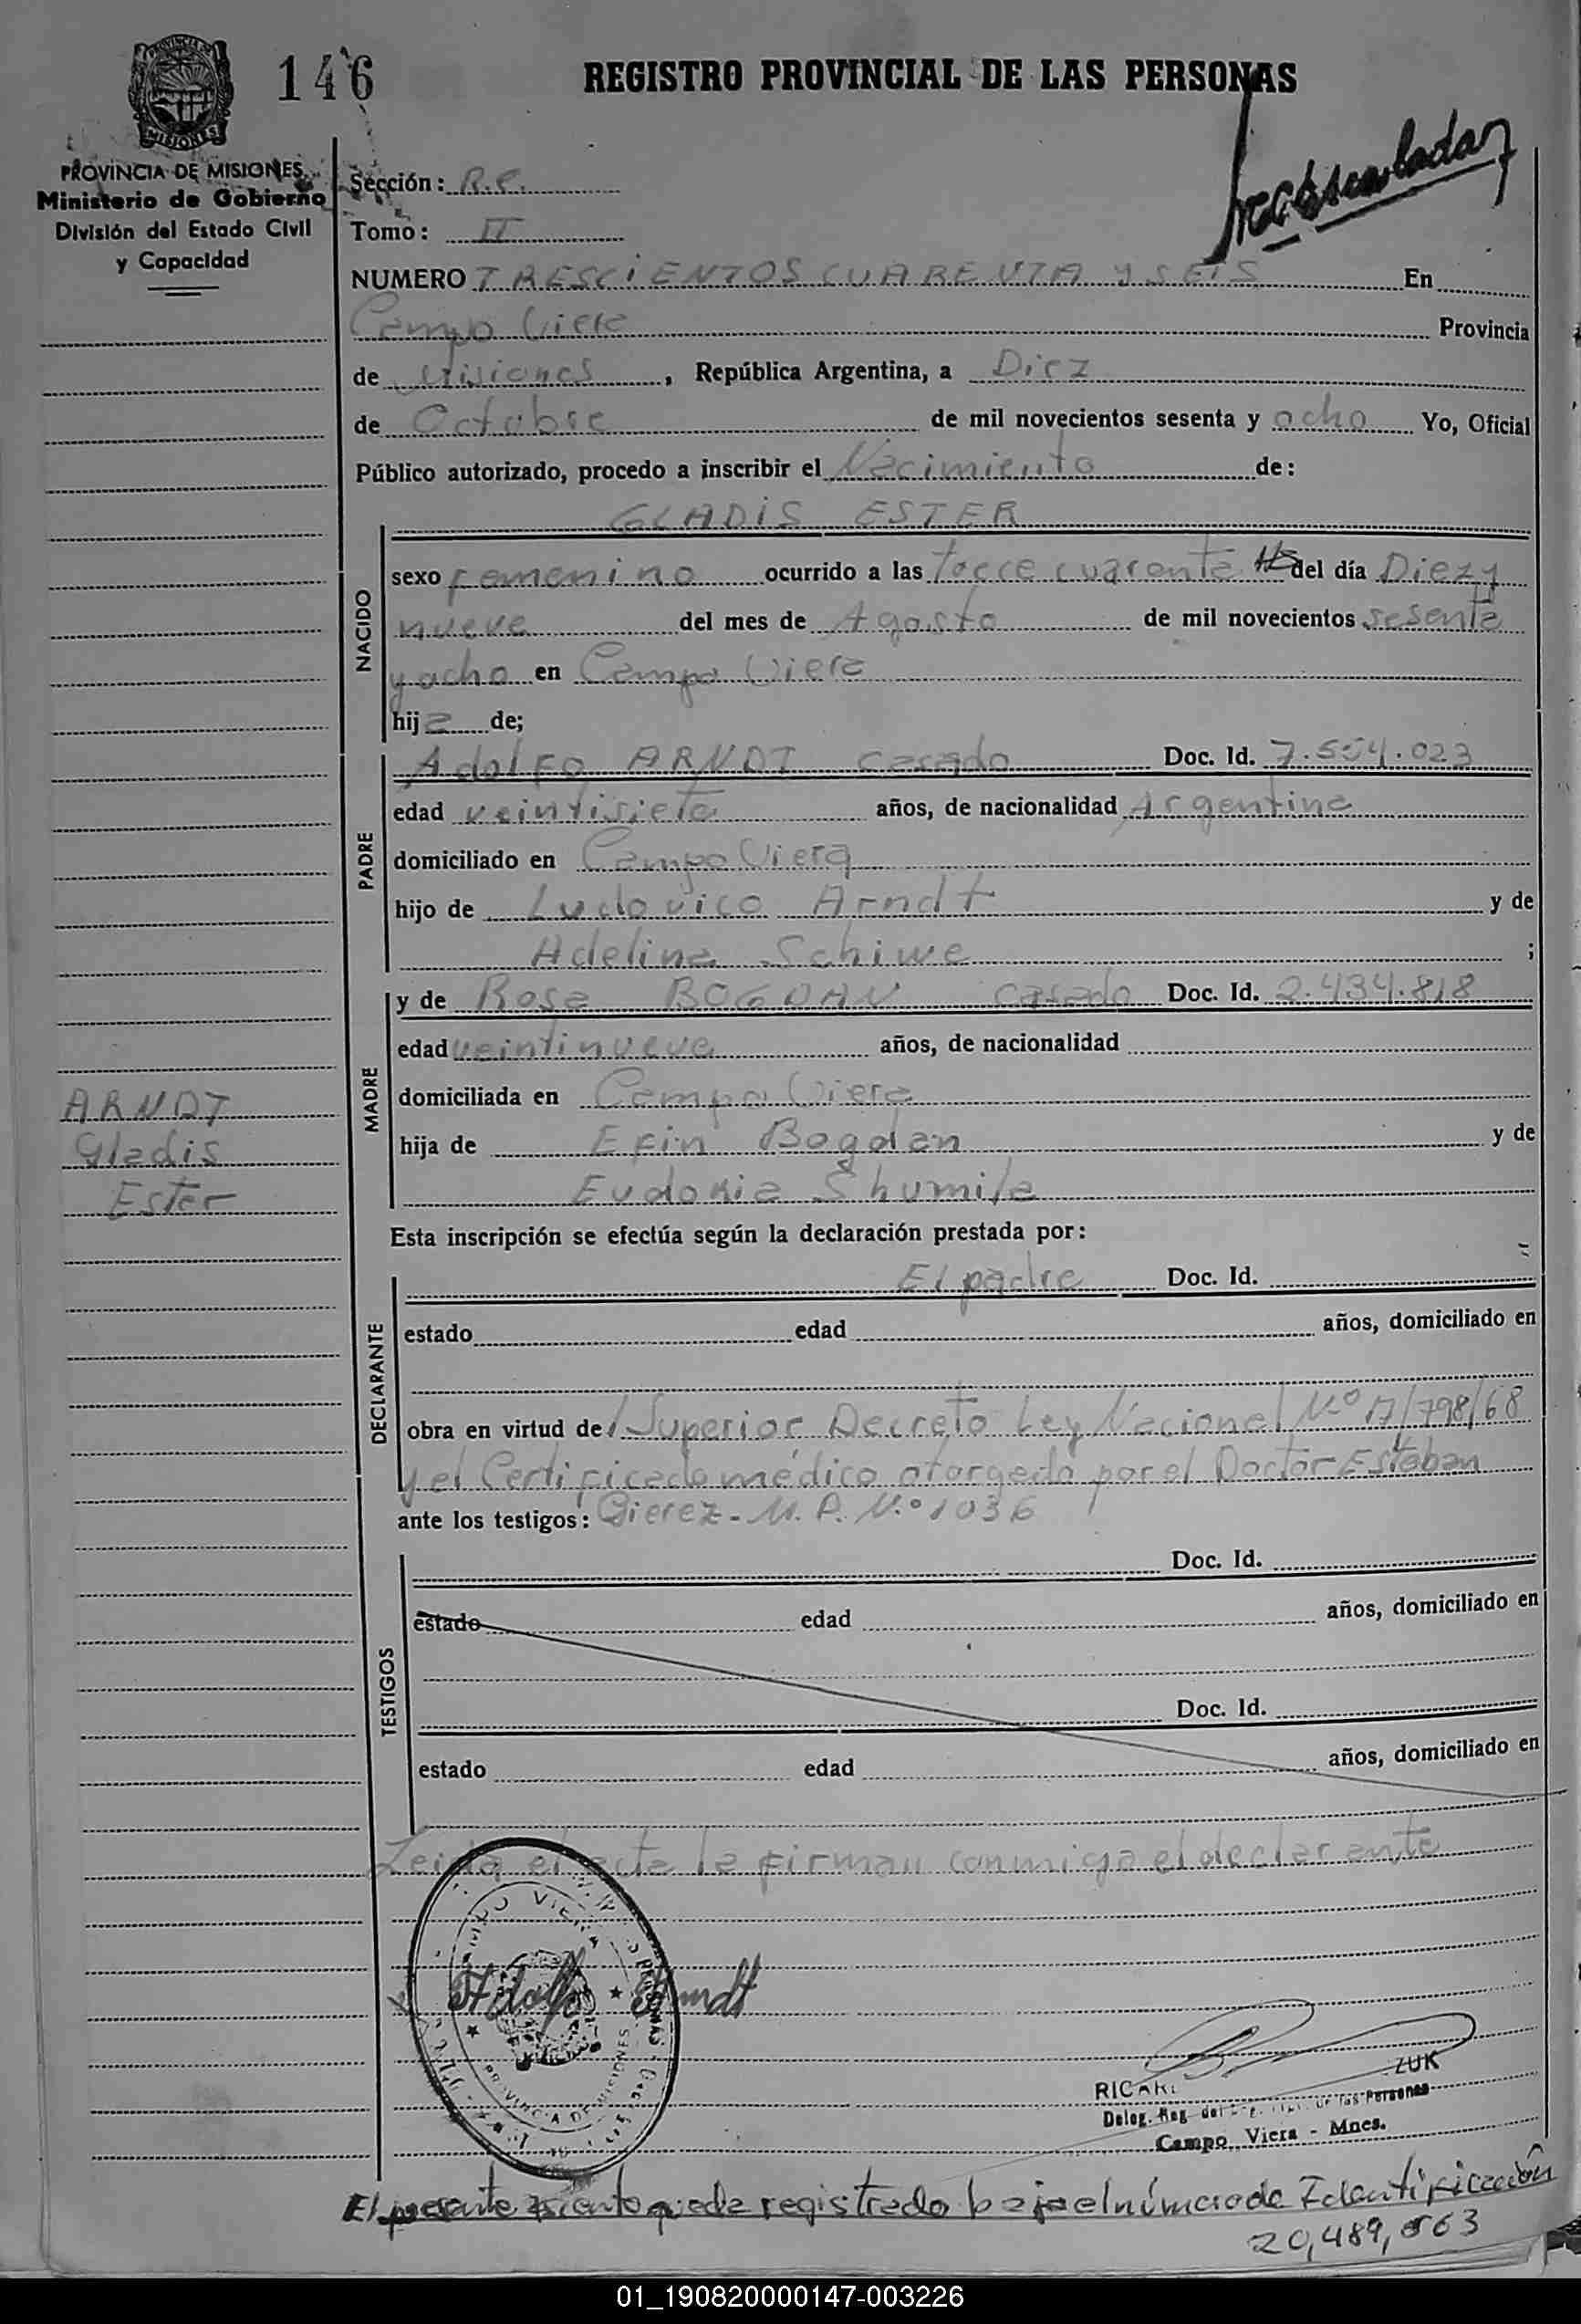 146
REGISTRO PROVINCIAL DE LAS PERSONAS
MISIONES
PROVINCIA DE MISIONES
Ministerio de Gobierno
División del Estado Civil
y Capacidad
Sección: R.E.
Tomo: II
NUMERO TRESCIENTOS CUARENTA Y SEIS En
Campo Viera Provincia
de Misiones, República Argentina, a Diez
de Octubre de mil novecientos sesenta y ocho Yo, Oficial
Público autorizado, procedo a inscribir el Nacimiento de:
GLADIS ESTER
NACIDO
sexo Femenino ocurrido a las trece cuarenta Hs del día Diez y
nueve del mes de Agosto de mil novecientos sesenta
y ocho en Campo Viera
hija de;
PADRE
Adolfo ARNDT casado Doc. Id. 7.554.023
edad veintisiete años, de nacionalidad Argentina
domiciliado en Campo Viera
hijo de Ludovico Arndt y de
Adelina Schiwe ;
MADRE
y de Rosa BOGDAN casada Doc. Id. 2.434.818
edad veintinueve años, de nacionalidad
domiciliada en Campo Viera
hija de Efin Bogdan y de
Eudokia Shumila
ARNDT
Gladis
Ester
Esta inscripción se efectúa según la declaración prestada por:
DECLARANTE
El padre Doc. Id.
estado edad años, domiciliado en
obra en virtud del Superior Decreto Ley Nacional Nº 17/798/68
y el Certificado médico otorgado por el Doctor Esteban
ante los testigos: Gierez - M.P. N.º 1036
TESTIGOS
Doc. Id.
estado edad años, domiciliado en
Doc. Id.
estado edad años, domiciliado en
Leida el acta la firman conmigo el declarante
Adolfo Arndt
CAMPO VIERA
PROVINCIA DE MISIONES
ZUK
Deleg. Reg. de las Personas
Campo Viera - Mnes.
El presente asiento queda registrado bajo el número de Identificación
20,489,063
01_190820000147-003226